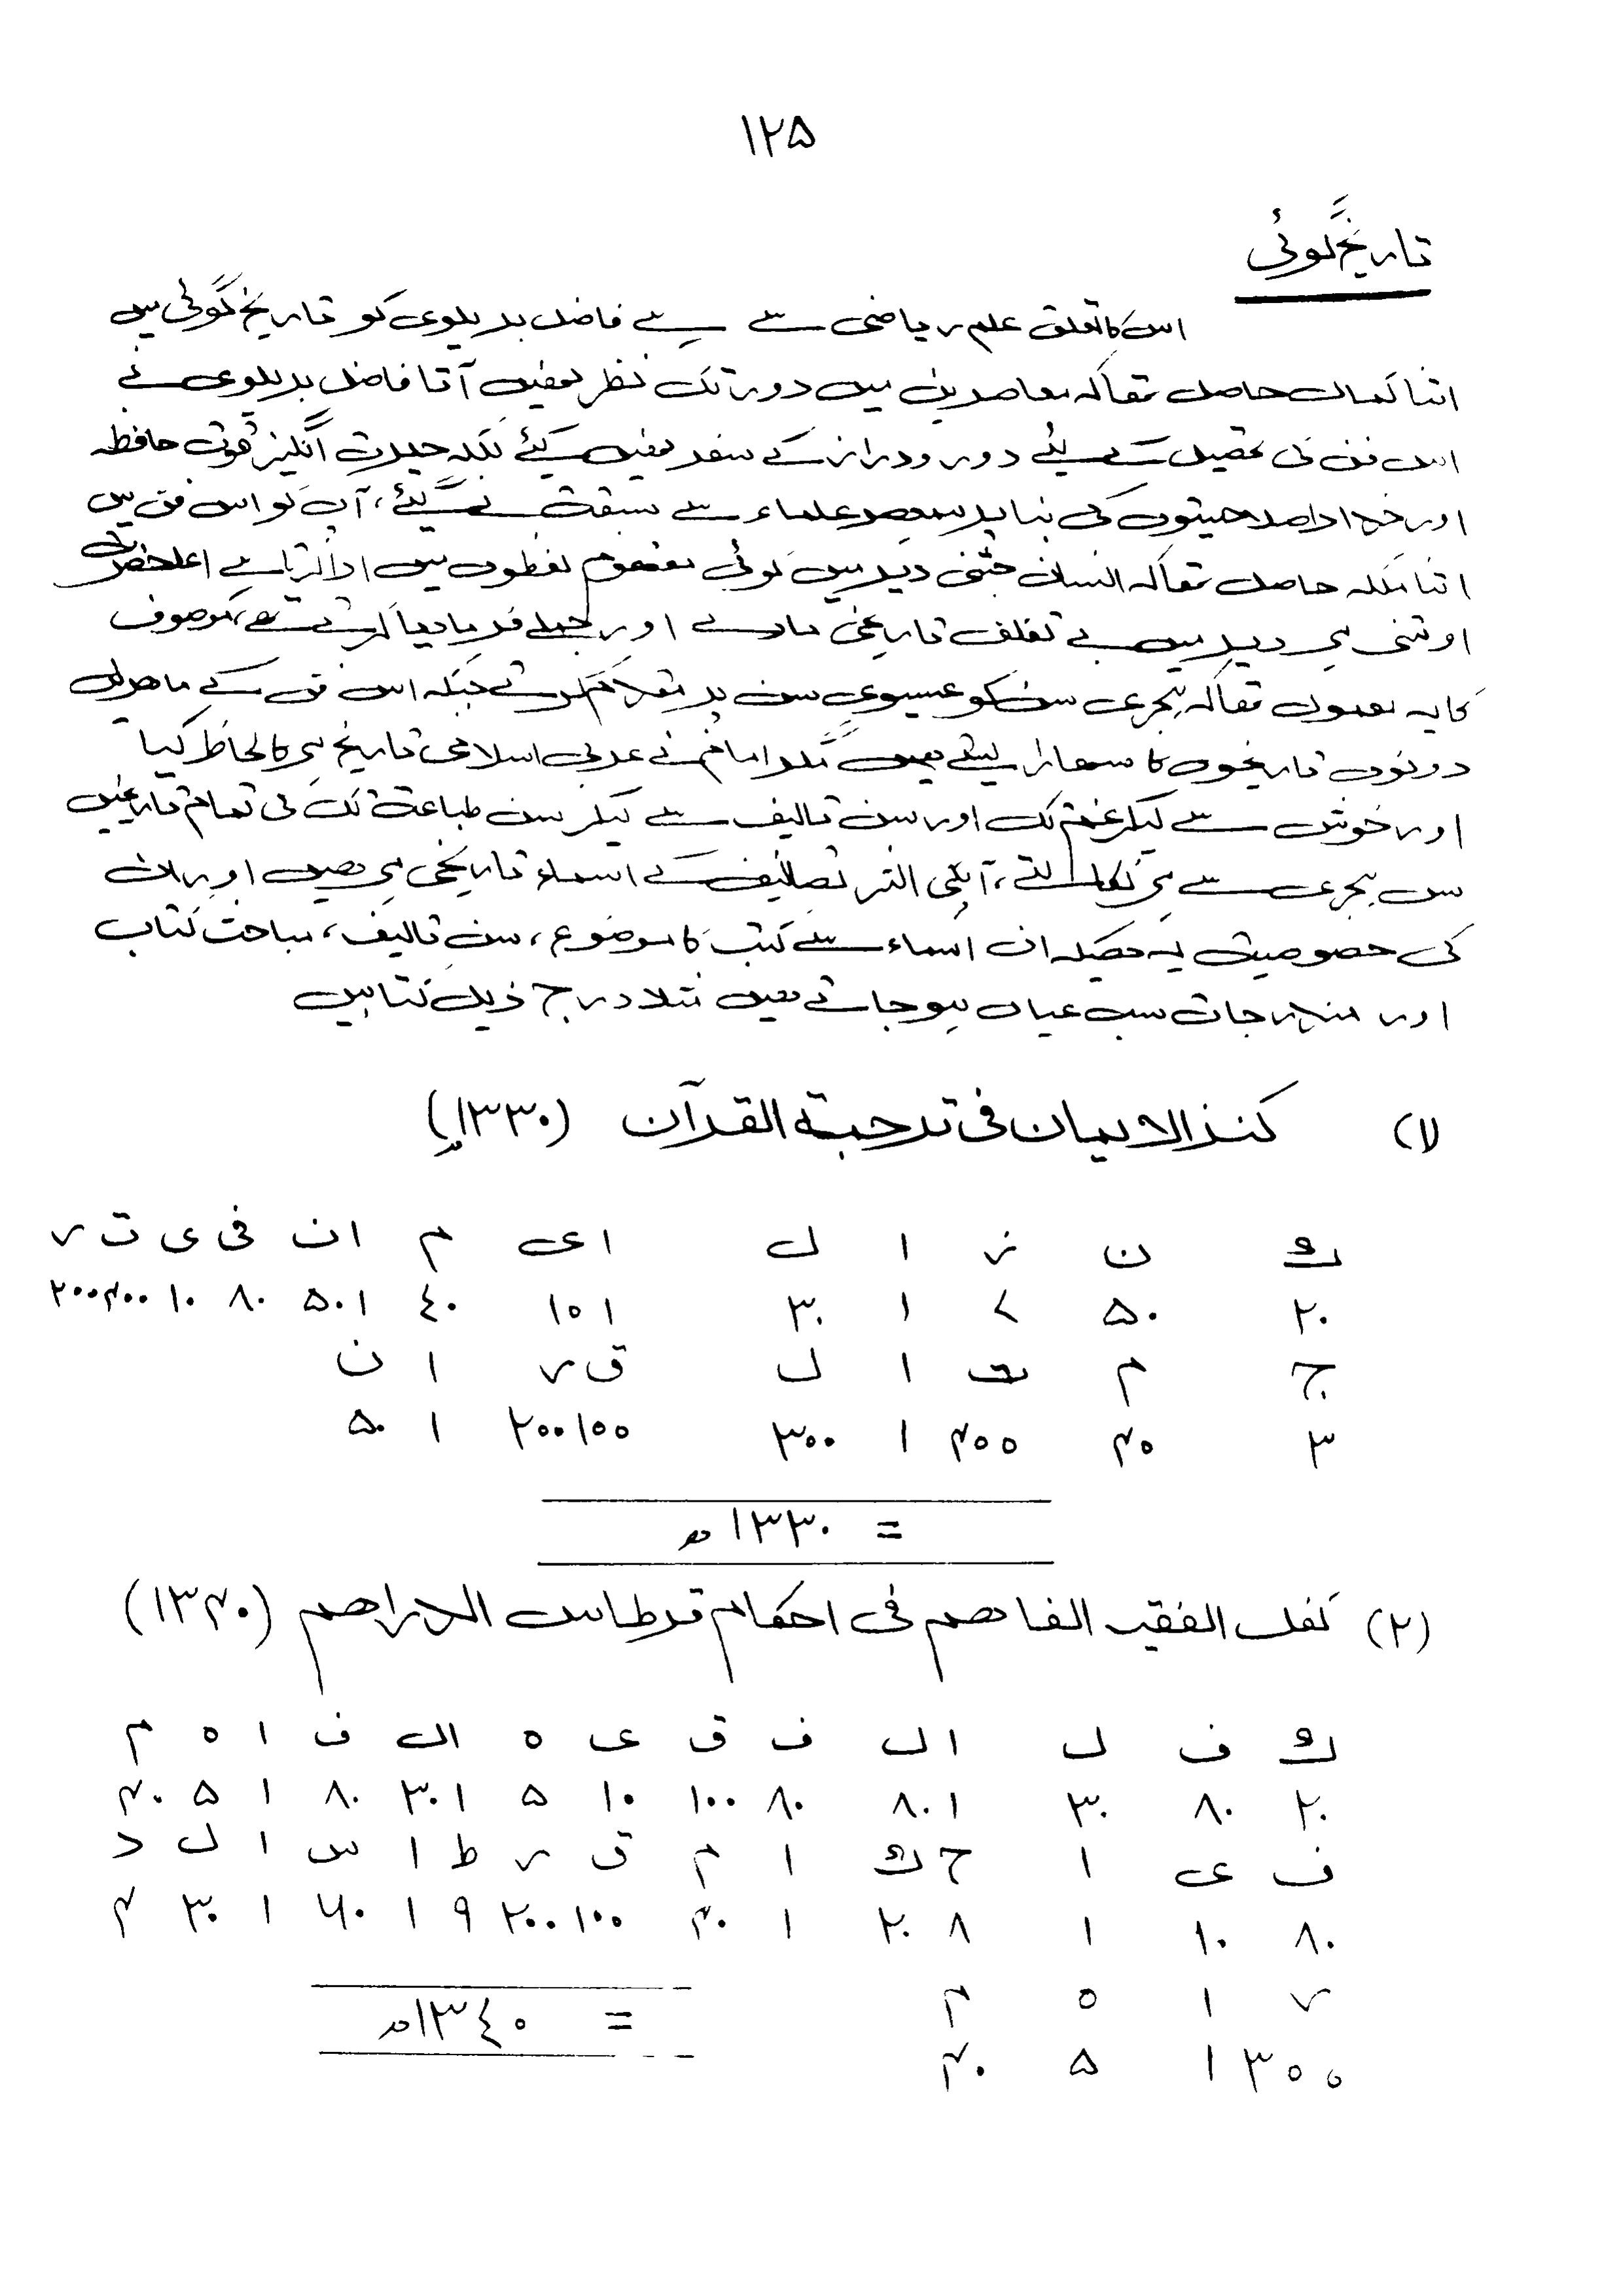 ۱۲۵
تاریخ گوئی
اس کا تعلق علم ریاضی سے ہے فاضل بریلوی کو تاریخ گوئی میں
اتنا کمال حاصل تھا کہ معاصرین میں دور تک نظر نہیں آتا فاضل بریلوی نے
اس فن کی تحصیل کے لئے دور و دراز کے سفر نہیں کیئے بلکہ حیرت انگیز قوت حافظہ
اور خدا داد صلاحیتوں کی بنا پر ہمعصر علماء سے سبقت لے گیئے، آپ کو اس فن میں
اتنا ملکہ حاصل تھا کہ انسان جتنی دیر میں کوئی مفہوم لفظوں میں ادا کرتا ہے اعلحضرت
اوتنی ہی دیر میں بے تکلف تاریخی مادے اور جملے فرما دیا کرتے تھے، موصوف
کا یہ معمول تھا کہ ہجری سن کو عیسوی سن پر مقدم کرتے جبکہ اس فن کے ماہرین
دونوں تاریخوں کا سہارا لیتے ہیں مگر امام نے عربی اسلامی تاریخ ہی کا لحاظ کیا
اور خوشی سے لیکر غم تک اور سن تالیف سے لیکر سن طباعت تک کی تمام تاریخیں
سن ہجری سے ہی نکالتے، آپکی اکثر تصانیف کے اسماء تاریخی ہی ہیں اور ان
کی خصوصیت یہ ھیکہ ان اسماء سے کتب کا موضوع، سن تالیف، مباحث کتاب
اور مندرجات سب عیاں ہو جاتے ہیں مثلا درج ذیل کتابیں
(۱) کنز الایمان فی ترجمۃ القرآن (۱۳۳۰ھ)
ک ن ز ا ل ا ی م ا ن ف ی ت ر
۲۰ ۵۰ ۷ ۱ ۳۰ ۱ ۱۰ ۴۰ ۱ ۵۰ ۸۰ ۱۰ ۴۰۰ ۲۰۰
ج م ت ا ل ق ر ا ن
۳ ۴۰ ۴۰۰ ۱ ۳۰۰ ۱۰۰ ۲۰۰ ۱ ۵۰
= ۱۳۳۰ھ
(۲) کفل الفقیہ الفاھم فی احکام قرطاس الدراھم (۱۳۴۰)
ک ف ل ا ل ف ق ی ہ ا ل ف ا ہ م
۲۰ ۸۰ ۳۰ ۱ ۸۰ ۸۰ ۱۰۰ ۱۰ ۵ ۱ ۳۰ ۸۰ ۱ ۵ ۴۰
ف ی ا ح ک ا م ق ر ط ا س ا ل د
۸۰ ۱۰ ۱ ۸ ۲۰ ۱ ۴۰ ۱۰۰ ۲۰۰ ۹ ۱ ۶۰ ۱ ۳۰ ۴
ر ا ہ م
۳۰۰ ۱ ۵ ۴۰
= ۱۳۴۰ھ